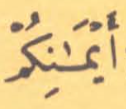 أَيْمَٰنِكُمْ